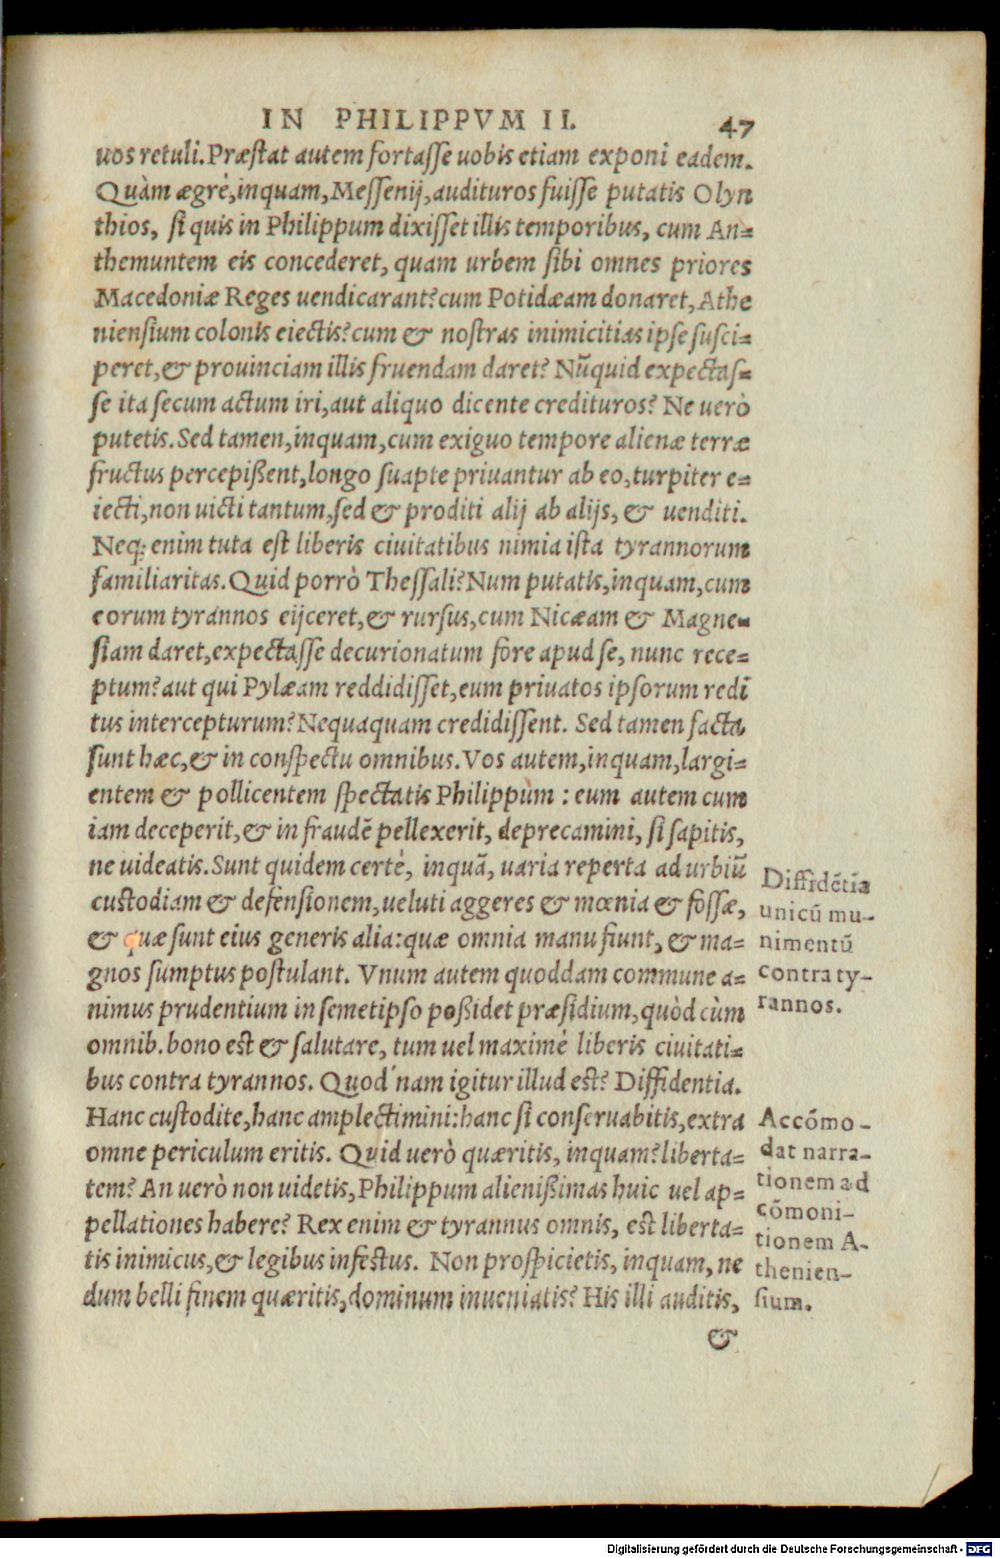 IN PHILIPPVM II. 47
uos retuli. Præstat autem fortasse uobis etiam exponi eadem.
Quàm ægrè, inquam, Messenij, audituros fuisse putatis Olyn
thios, si quis in Philippum dixisset illis temporibus, cum An=
themuntem eis concederet, quam urbem sibi omnes priores
Macedoniæ Reges uendicarant? cum Potidæam donaret, Athe
niensium colonis eiectis? cum & nostras inimicitias ipse susci=
peret, & prouinciam illis fruendam daret? Nũquid expectas=
se ita secum actum iri, aut aliquo dicente credituros? Ne uerò
putetis. Sed tamen, inquam, cum exiguo tempore alienæ terræ
fructus percepißent, longo suapte priuantur ab eo, turpiter e=
iecti, non uicti tantum, sed & proditi alij ab alijs, & uenditi.
Neq; enim tuta est liberis ciuitatibus nimia ista tyrannorum
familiaritas. Quid porrò Thessali? Num putatis, inquam, cum
eorum tyrannos eijceret, & rursus, cum Nicæam & Magne=
siam daret, expectasse decurionatum fore apud se, nunc rece=
ptum? aut qui Pylæam reddidisset, eum priuatos ipsorum redi
tus intercepturum? Nequaquam credidissent. Sed tamen facta
sunt hæc, & in conspectu omnibus. Vos autem, inquam, largi=
entem & pollicentem spectatis Philippum: eum autem cum
iam deceperit, & in fraudẽ pellexerit, deprecamini, si sapitis,
ne uideatis. Sunt quidem certè, inquã, uaria reperta ad urbiũ
custodiam & defensionem, ueluti aggeres & mœnia & fossæ,
& quæ sunt eius generis alia: quæ omnia manu fiunt, & ma=
gnos sumptus postulant. Vnum autem quoddam commune a=
nimus prudentium in semetipso poßidet præsidium, quòd cùm
omnib. bono est & salutare, tum uel maximè liberis ciuitati=
bus contra tyrannos. Quod'nam igitur illud est? Diffidentia.
Hanc custodite, hanc amplectimini: hanc si conseruabitis, extra
omne periculum eritis. Quid uerò quæritis, inquam? liberta=
tem? An uerò non uidetis, Philippum alienißimas huic uel ap=
pellationes habere? Rex enim & tyrannus omnis, est liberta=
tis inimicus, & legibus infestus. Non prospicietis, inquam, ne
dum belli finem quæritis, dominum inueniatis? His illi auditis,
&
Diffidẽtia
unicũ mu-
nimentũ
contra ty-
rannos.
Accõmo-
dat narra-
tionem ad
cõmoni-
tionem A-
thenien-
sium.
Digitalisierung gefördert durch die Deutsche Forschungsgemeinschaft - DFG